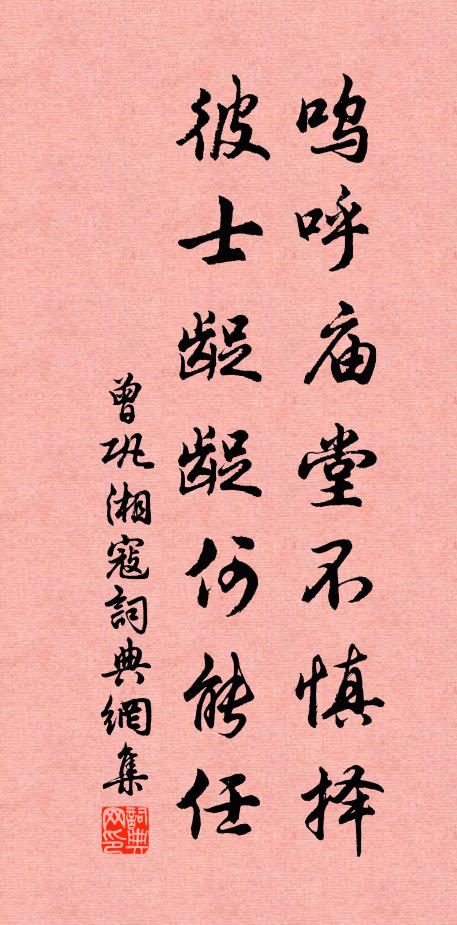 呜呼庙堂不慎择
彼士龊龊何能任
曾巩湘寇詞典網集
詞典网印